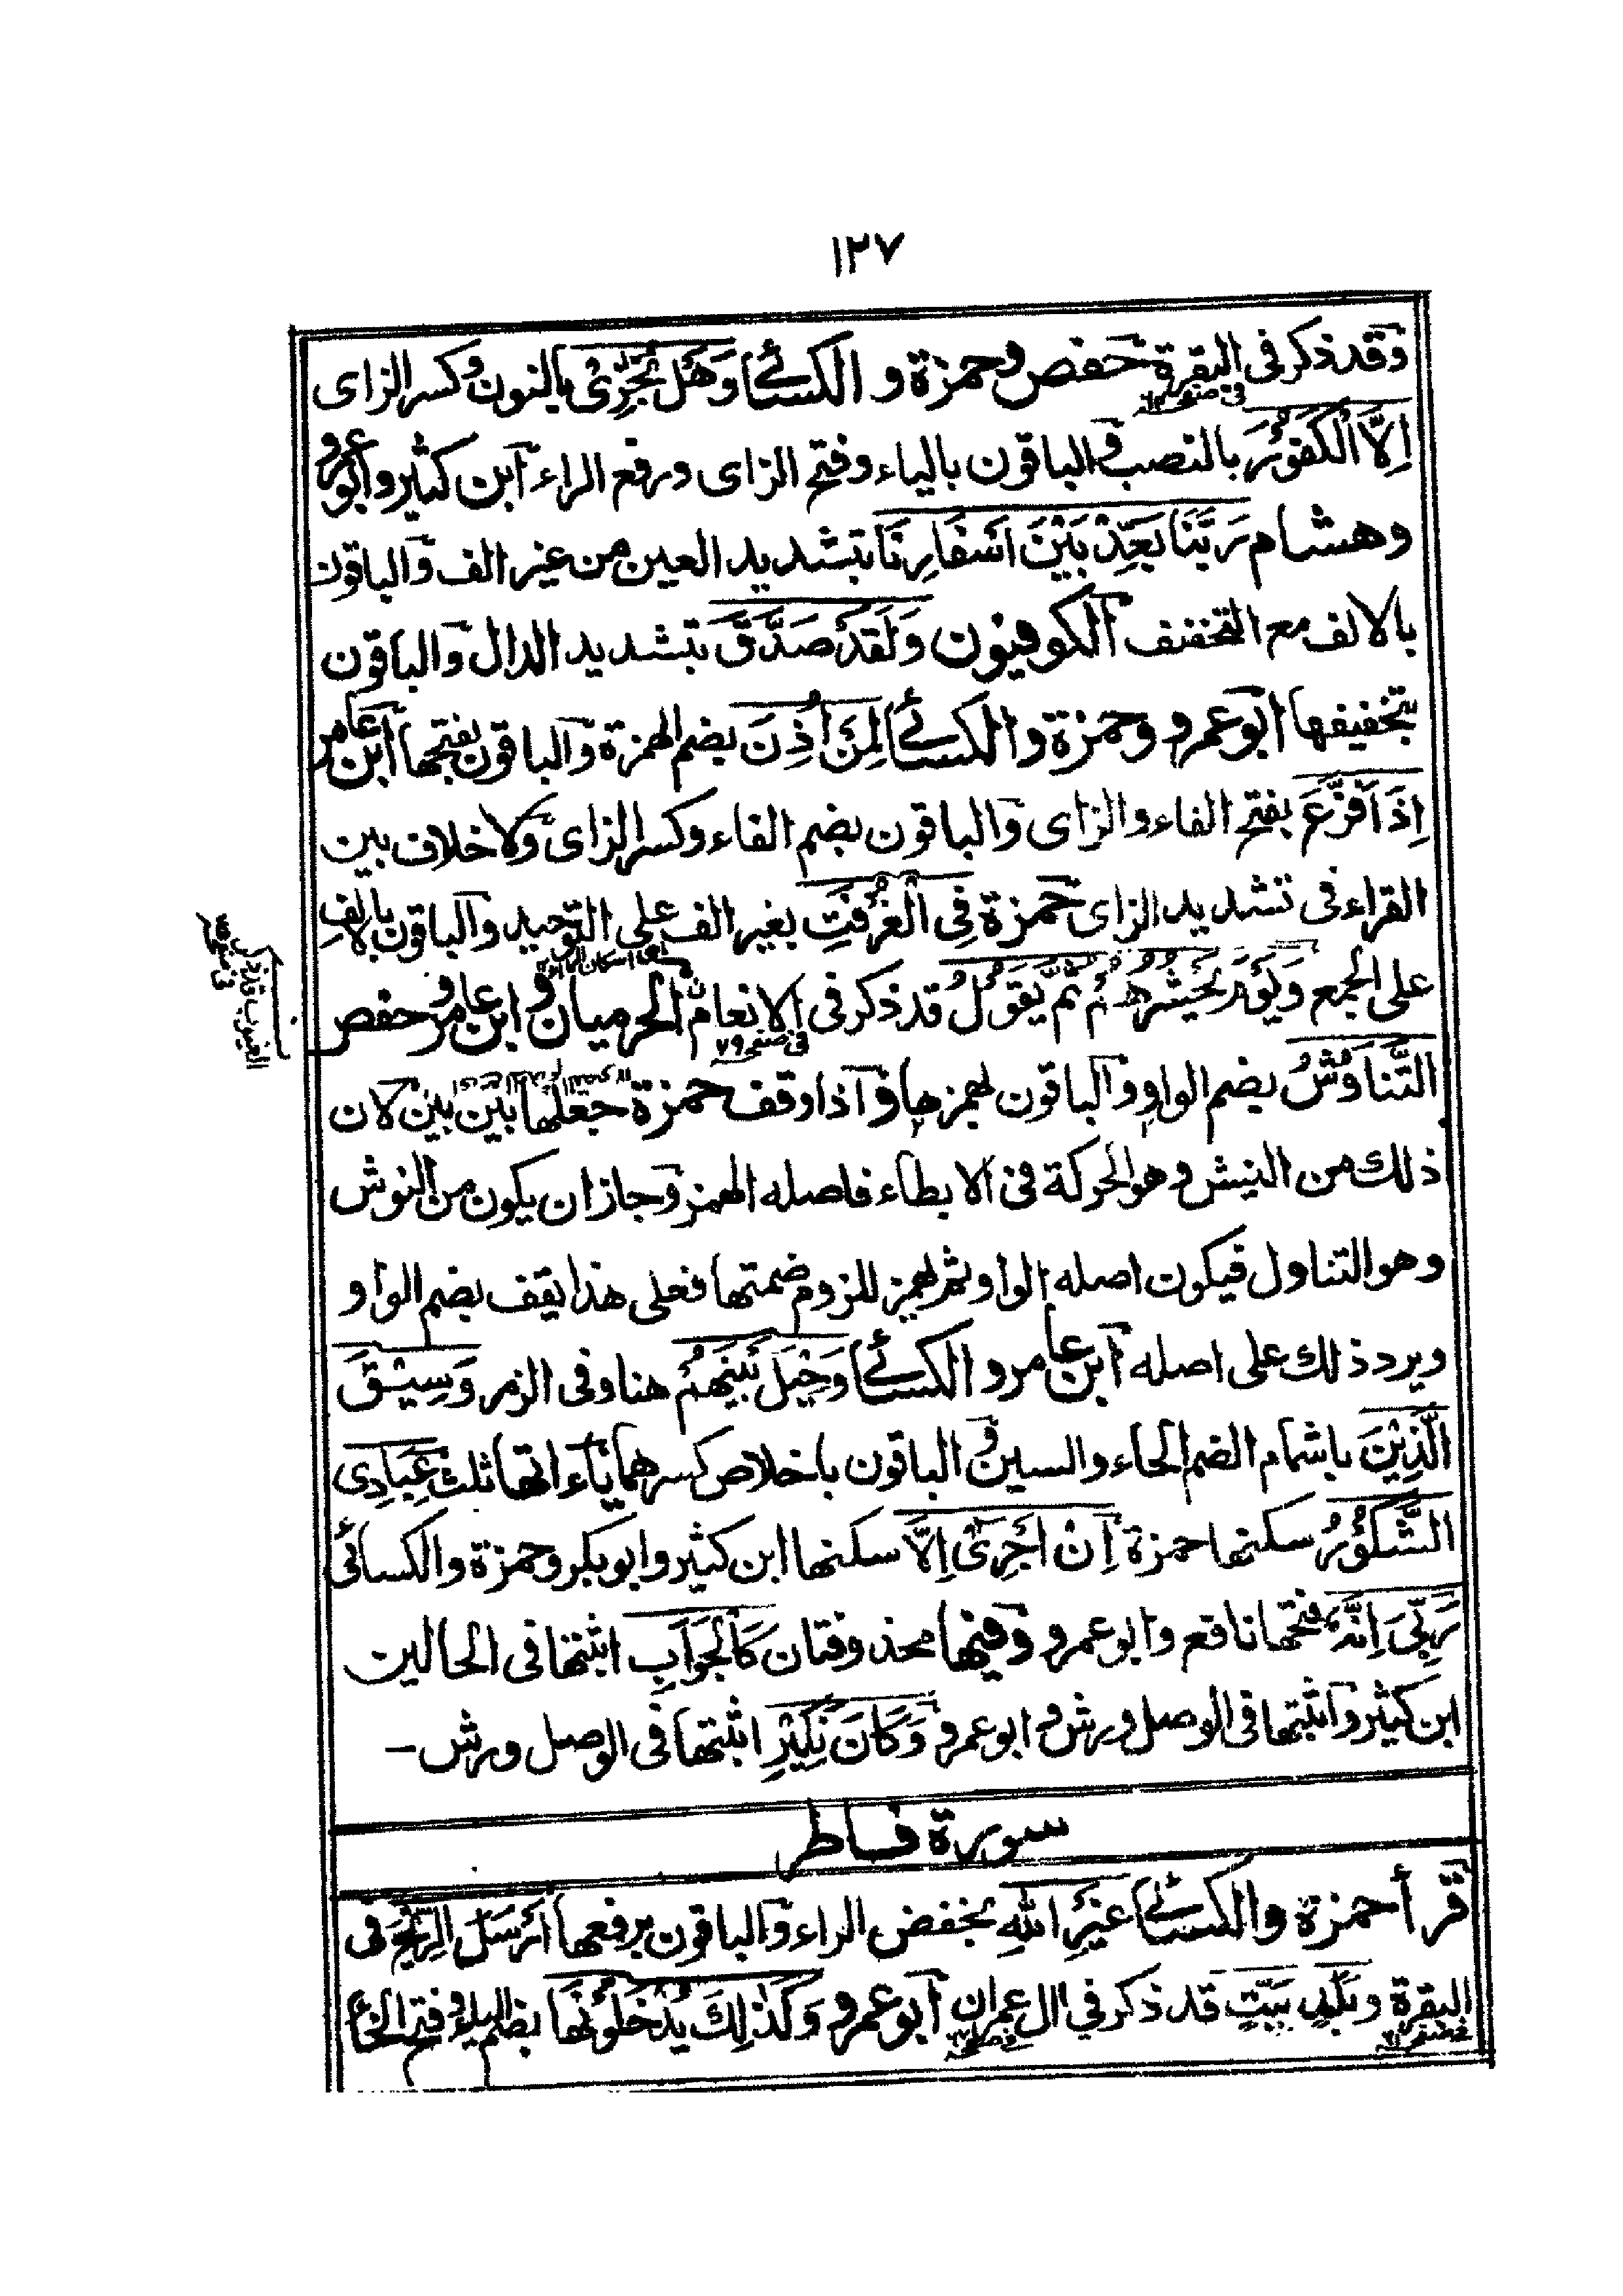 ١٢٧
وقد ذكر فى البقرة حفص وحمزة والكسائے وَهَلْ نُجٰزِىْ بالنون وكسر الزاى
فى صفحه
اِلَّا الْكَفُوْرَ بالنصب والباقون بالياء وفتح الزاى ورفع الراء ابن كثير وابو عمرو
وهشام رَبَّنَا بَعِّدْ بَيْنَ اَسْفَارِنَا بتشديد العين من غير الف والباقون
بالالف مع التخفيف الكوفيون وَلَقَدْ صَدَّقَ بتشديد الدال والباقون
بتخفيفها ابو عمرو وحمزة والكسائے لِمَنْ اُذِنَ بضم الهمزة والباقون بفتحها ابن عامر
اِذَا فَزَّعَ بفتح الفاء والزاى والباقون بضم الفاء وكسر الزاى ولا خلاف بين
القراء فى تشديد الزاى حمزة فِى الْغُرْفَتِ بغير الف على التوحيد والباقون بالالف
على الجمع وَيَوْمَ يَحْشُرُهُمْ ثُمَّ يَقُوْلُ قد ذكر فى الانعام الحرميان وابن عامر وحفص
فى صفحه ٧٩
التَّنَاوُشُ بضم الواو والباقون بهمزها واذا وقف حمزة جعلها بين بين لان
ذلك من النيش وهو الحركة فى الابطاء فاصله الهمز وجاز ان يكون من النوش
وهو التناول فيكون اصله الواو ثم لهمز للزوم ضمتها فعلى هذا يقف بضم الواو
ويرد ذلك على اصله ابن عامر والكسائے وَحِيْلَ بَيْنَهُمْ هنا وفى الزمر وَسِيْقَ
الَّذِيْنَ باشمام الضم الحاء والسين والباقون باخلاص كسرهما ياءاتها ثلث عِبَادِى
الشَّكُوْرُ سكنها حمزة اِنْ اَجْرِىَ اِلَّا سكنها ابن كثير وابو بكر وحمزة والكسائى
رَبِّىَ اِنَّهٗ فتحها نافع وابو عمرو وفيها محذوفتان كَالْجَوَابِ اثبتها فى الحالين
ابن كثير واثبتها فى الوصل ورش وابو عمرو وَكَانَ نَكِيْرِ اثبتها فى الوصل ورش -
سورة فاطر
قرأ حمزة والكسائے غَيْرِ اللهِ بخفض الراء والباقون برفعها اَرْسَلَ الرِّيْحَ فى
البقرة وبَلَدٍ مَيِّتٍ قد ذكر في ال عمران ابو عمرو وَكَذٰلِكَ يُدْخَلُوْنَهَا بضم الياء وفتح الخاء